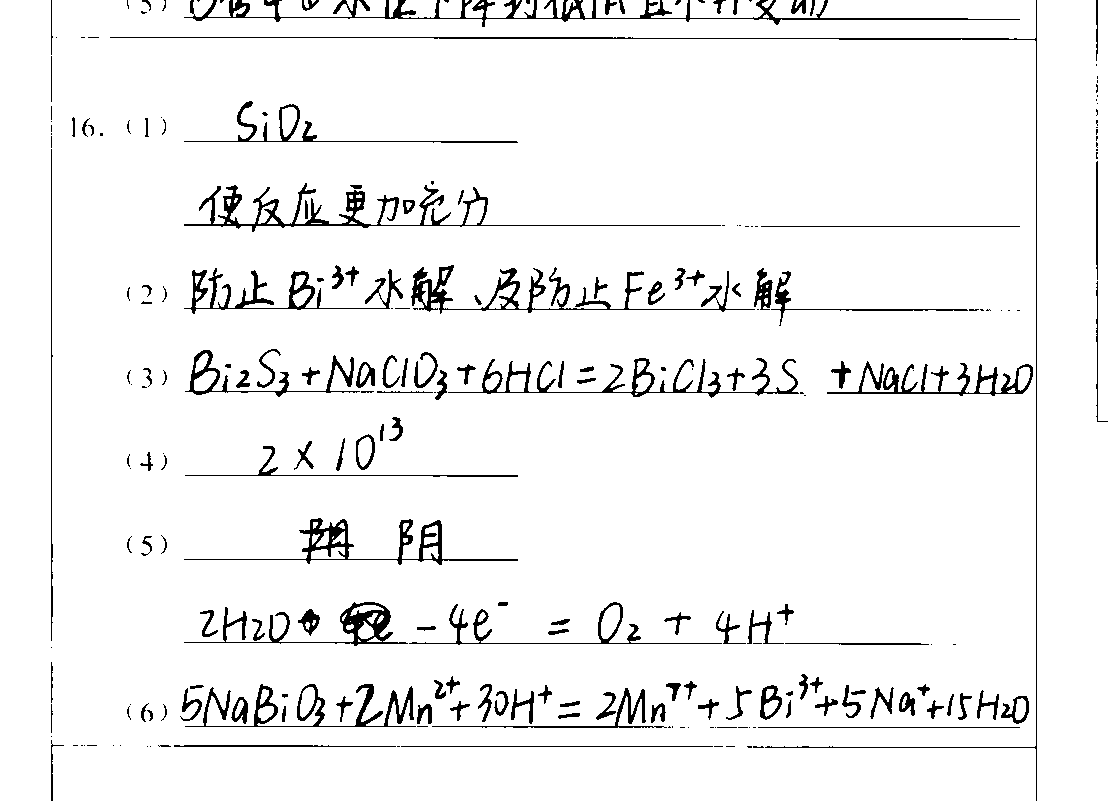 (5) 水位下降到低
16. (1) SiO₂
使反应更加充分
(2) 防止Bi³⁺水解、及防止Fe³⁺水解
(3) Bi₂S₃+NaClO₃+6HCl=2BiCl₃+3S +NaCl+3H₂O
(4) 2×10¹³
(5) 阴
2H₂O -4e⁻ = O₂ + 4H⁺
(6) 5NaBiO₃+2Mn²⁺+30H⁺=2Mn⁷⁺+5Bi³⁺+5Na⁺+15H₂O